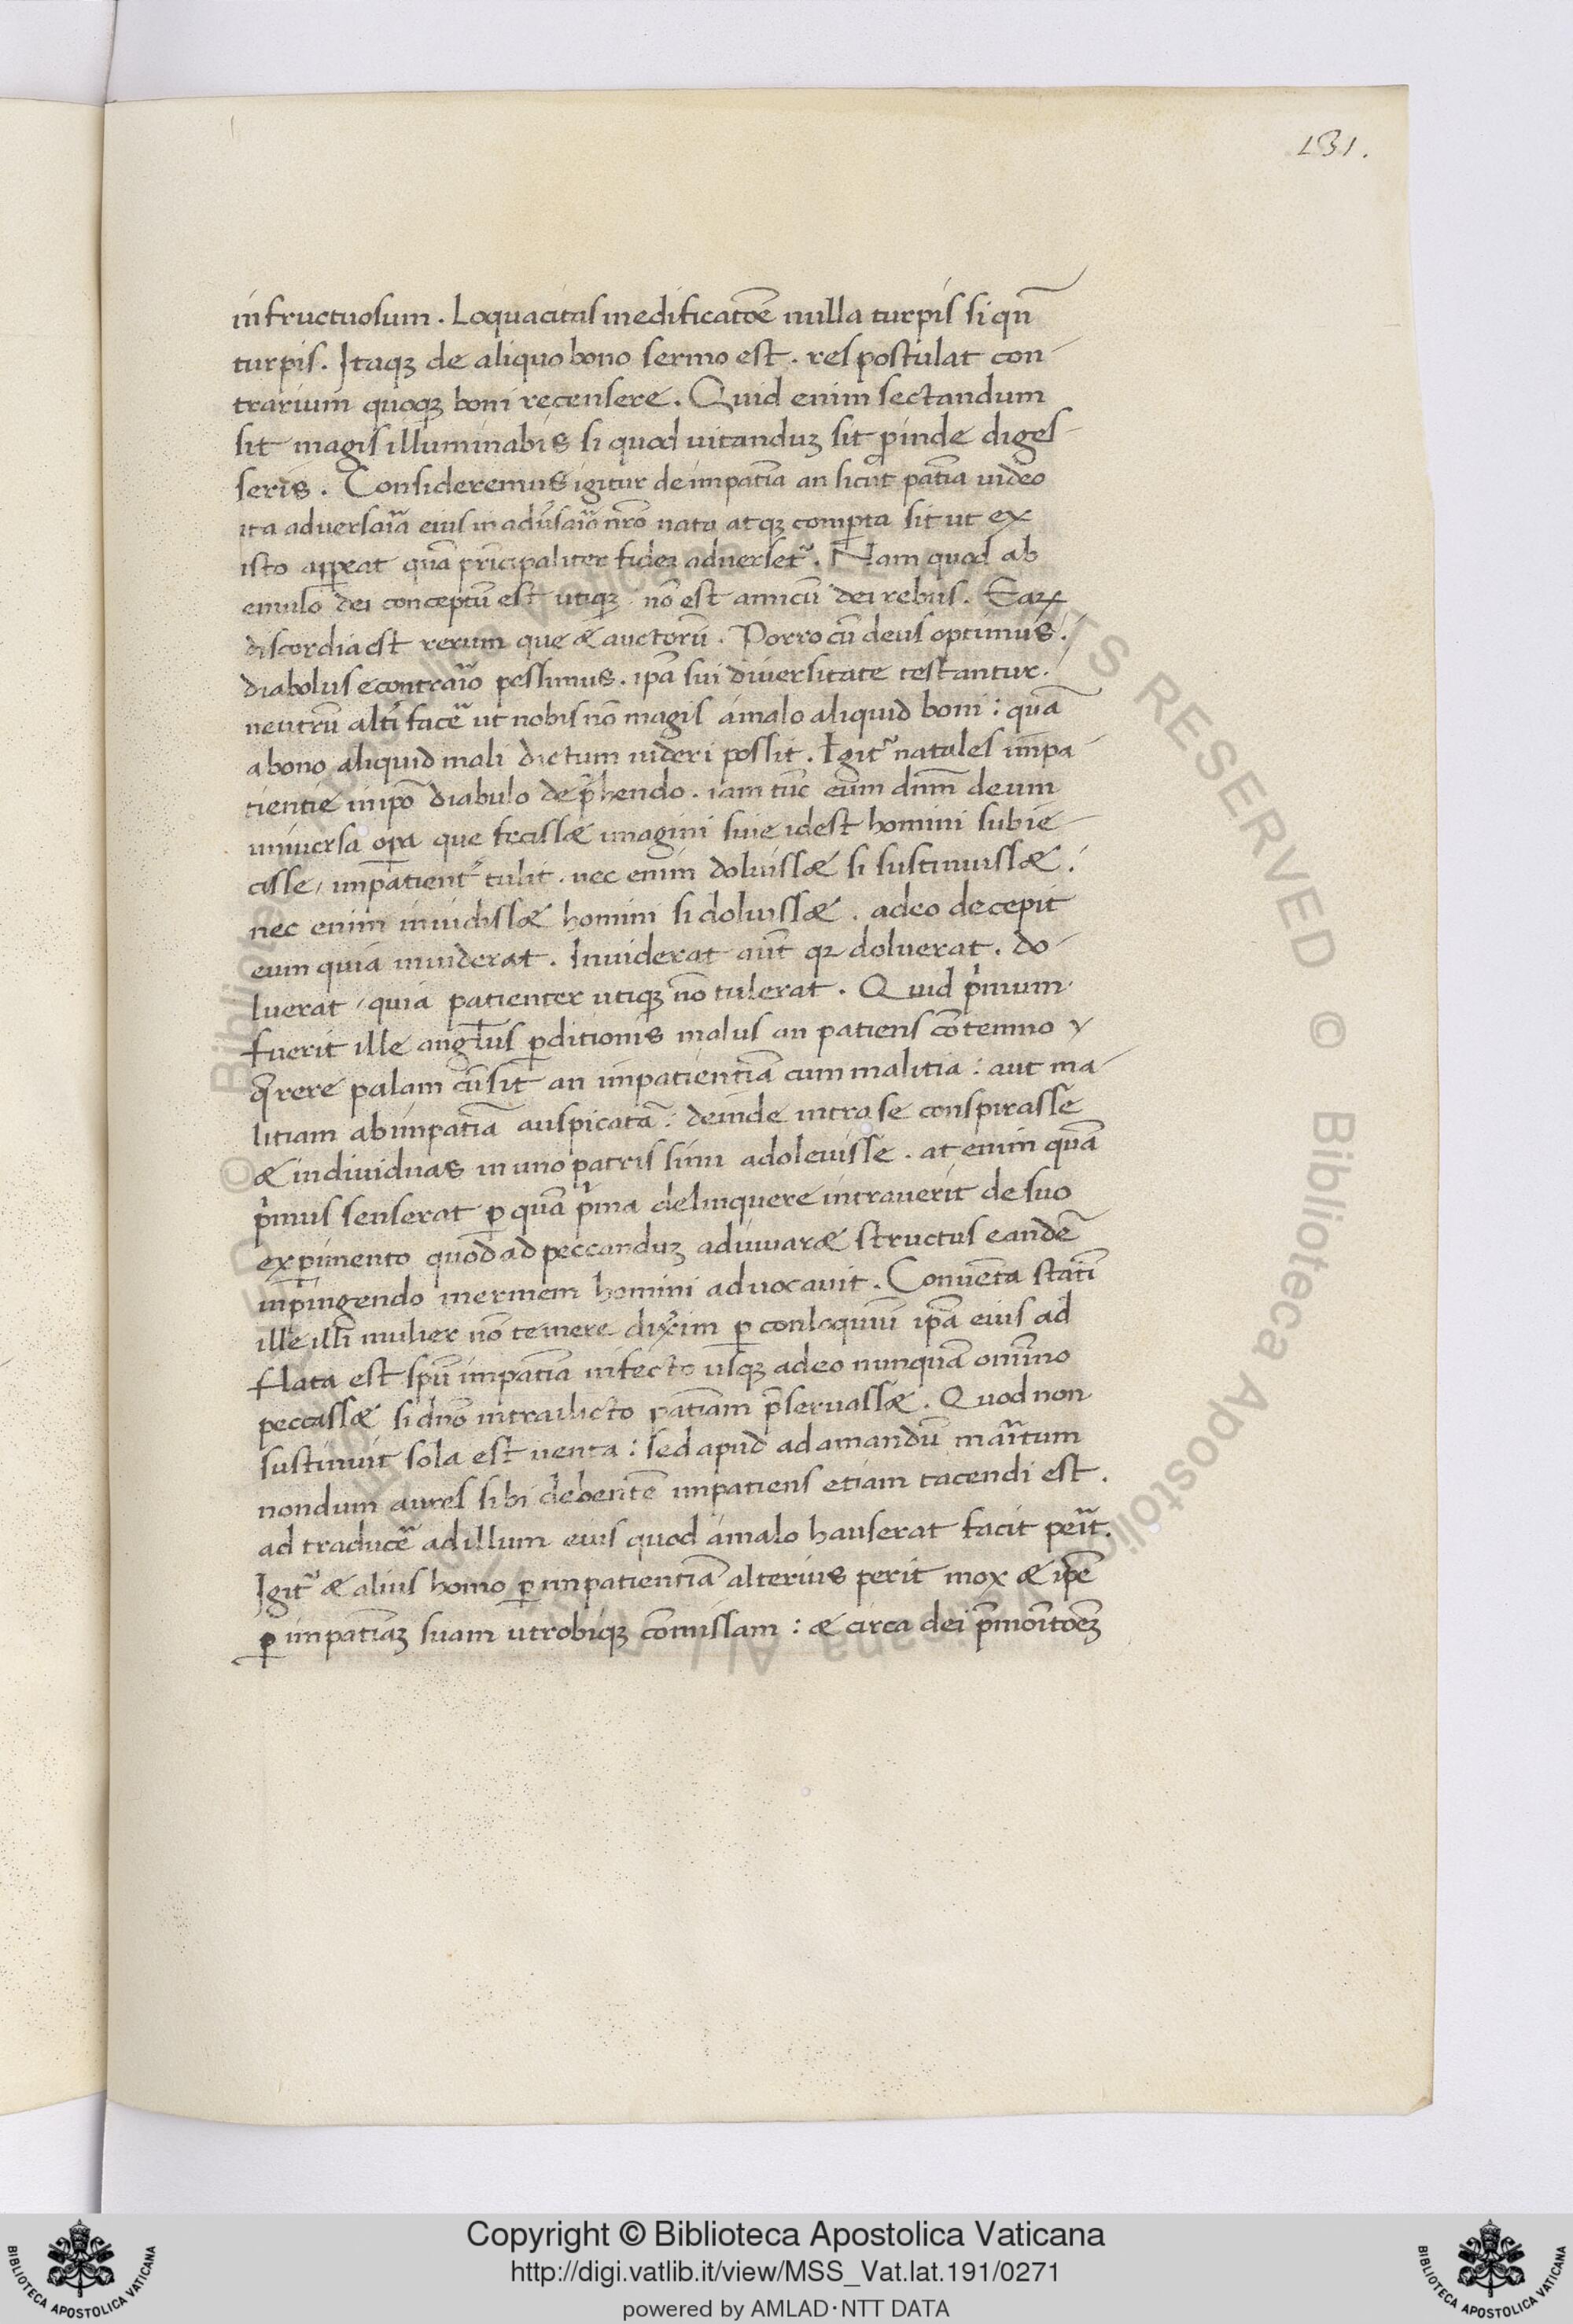 131.
infructuosum. Loquacitas inedificatōe nulla turpis si qn̄
turpis. Itaqꝫ de aliquo bono sermo est. res postulat con-
trarium quoqꝫ boni recensere. Quid enim sectandum
sit magis illuminabis si quod uitanduꝫ sit ꝓinde diges-
seris. Consideremus igitur de impatīa an sicut patīa in deo
ita aduersaīa eius in adūsaīo nrō nata atqꝫ comꝑta sit ut ex
isto appareat quā prīcipaliter fidei aduerset᷑. Nam quod ab
emulo dei conceptū est utiqꝫ nō est amicū dei rebus. Eaꝝ
discordia est rerum que & auctorū. Porro cū deus optimus.
diabolus econtraīo pessimus. ip̄a sui diuersitate testantur.
neutrū altī facē ut nobis nō magis a malo aliquid boni: quā
a bono aliquid mali dictum uideri possit. Igit᷑ natales impa-
tientie in ip̄o diabulo dep̄hendo. iam tūc cum dn̄m deum
uniuersa oꝑa que fecissæ imagini suie idest homini subie-
cisse, impatient᷑ tulit. nec enim doluissæ si sustinuissæ.
nec enim inuidissæ homini si doluissæ. adeo decepit
eum quia inuiderat. Inuiderat aūt qꝛ doluerat. do-
luerat, quia patienter utiqꝫ nō tulerat. Quid pͥmum
fuerit ille angĺus ꝑditionis malus an patiens cōtemno
q̄rere palam cū sit an impatientiā cum malitia: aut ma-
litiam ab impatīa auspicatā: deinde intra se conspirasse
& indiuiduas in uno patris sinu adoleuisse. at enim quā
pͥmus senserat ꝑ quā pͥma delinquere intrauerit de suo
exꝑimento quod ad peccanduꝫ adiuuaræ structus eandē
inpingendo inermem homini aduocauit. Conuēta statī
ille illi mulier nō temere dixerim ꝑ conloquiū ip̄a eius ad
flata est spū impatīa infecto usqꝫ adeo nunquā omīno
peccassæ si dīuo intradicto patīam p̄seruassæ. Quod non
sustinuit sola est uenta: sed apud adamandū maīītum
nondum aures sibi debentē impatiens etiam tacendi est.
ad traducē ad illum eius quod a malo hauserat facit peīt.
Igit᷑ & alius homo ꝑ impatientiā alterius perit mox & ip̄e
ꝑ impatīaꝫ suam utrobiqꝫ comissam: & circa dei p̄monitōeꝫ
Copyright © Biblioteca Apostolica Vaticana
http://digi.vatlib.it/view/MSS_Vat.lat.191/0271
powered by AMLAD·NTT DATA